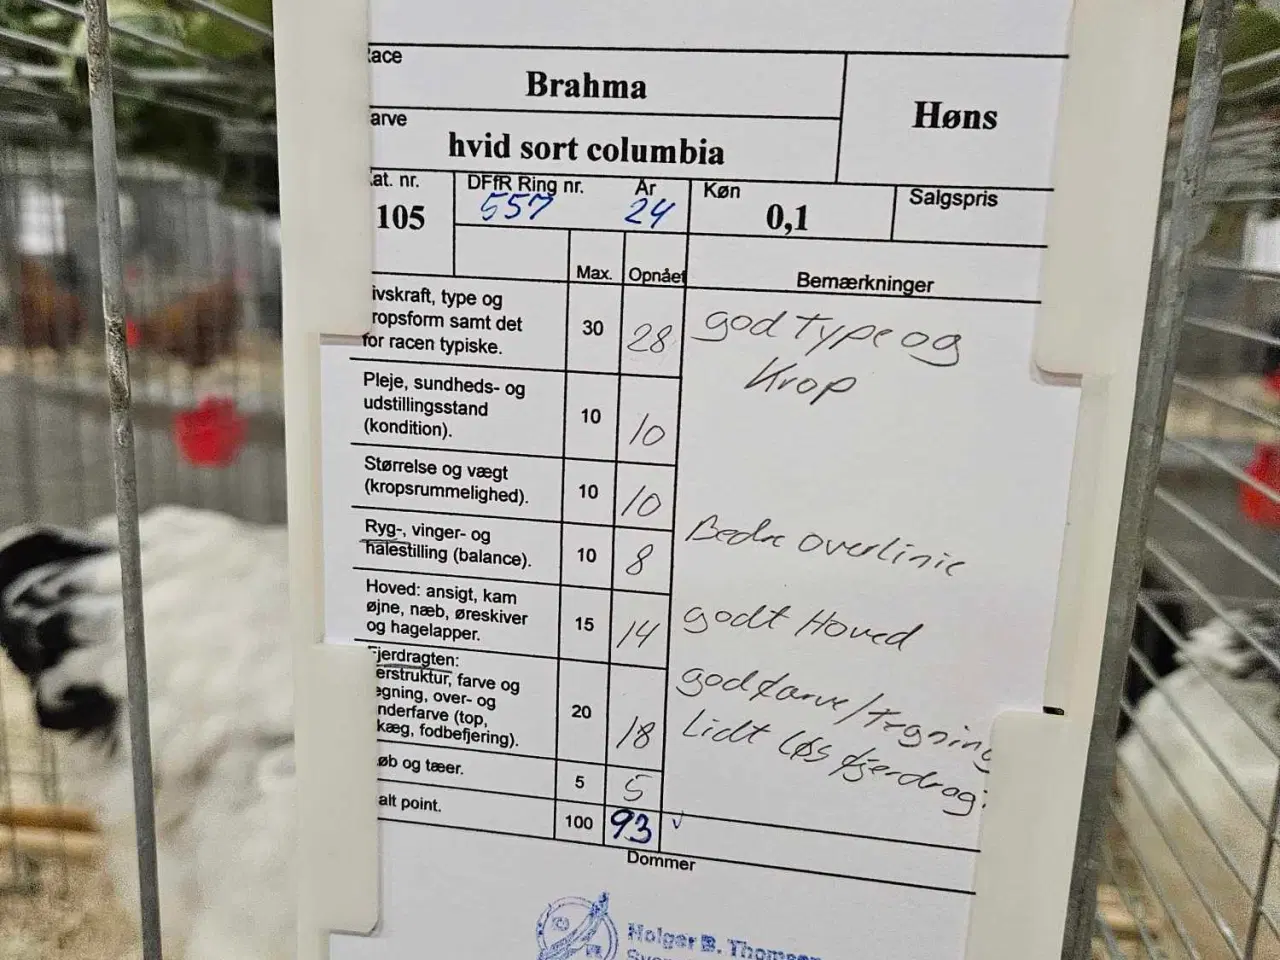 ace
Brahma
Høns
arve
hvid sort columbia
at. nr.
DFfR Ring nr.
År
Køn
Salgspris
105
557
24
0,1
Max.
Opnået
Bemærkninger
ivskraft, type og
ropsform samt det
for racen typiske.
30
28
god type og
Krop
Pleje, sundheds- og
udstillingsstand
(kondition).
10
10
Størrelse og vægt
(kropsrummelighed).
10
10
Ryg-, vinger- og
halestilling (balance).
10
8
Bedre overlinie
Hoved: ansigt, kam
øjne, næb, øreskiver
og hagelapper.
15
14
godt Hoved
Fjerdragten:
erstruktur, farve og
egning, over- og
nderfarve (top,
kæg, fodbefjering).
20
18
god farve/tegning
Lidt løs fjerdrag
øb og tæer.
5
5
alt point.
100
93
Dommer
Holger B.